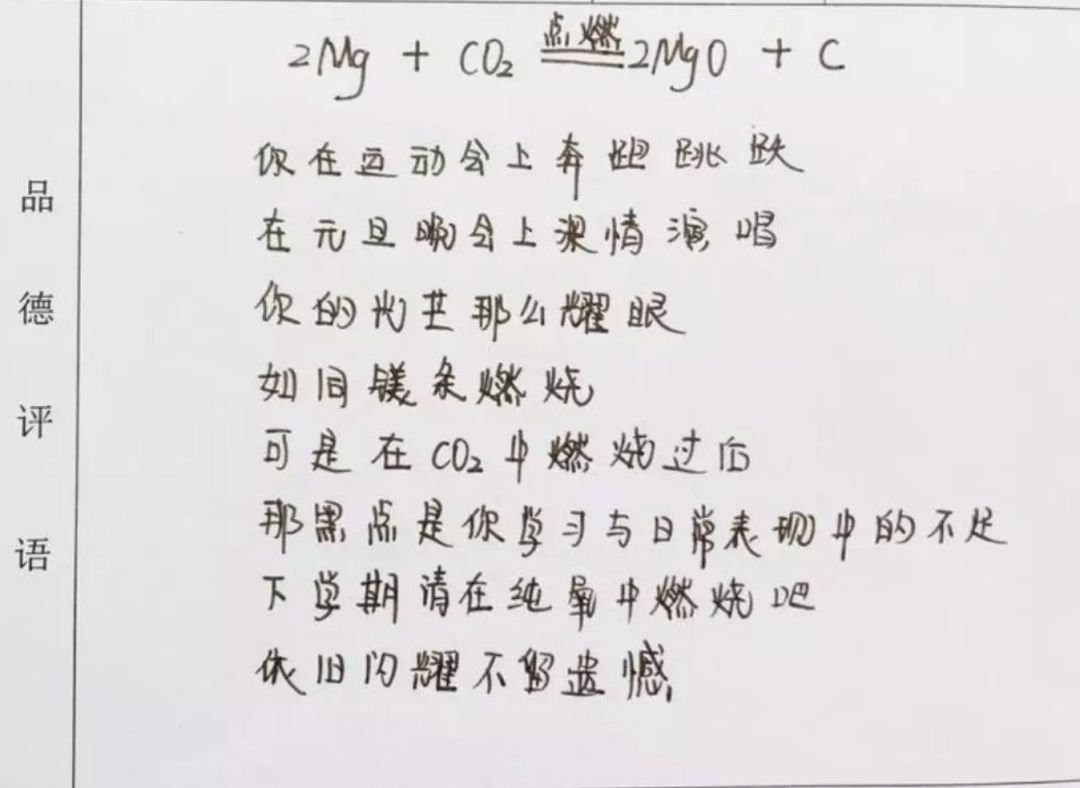 2Mg + CO₂ 点燃══ 2MgO + C
你在运动会上奔跑跳跃
在元旦晚会上深情演唱
你的光芒那么耀眼
如同镁条燃烧
可是在CO₂中燃烧过后
那黑点是你学习与日常表现中的不足
下学期请在纯氧中燃烧吧
依旧闪耀不留遗憾
品德评语